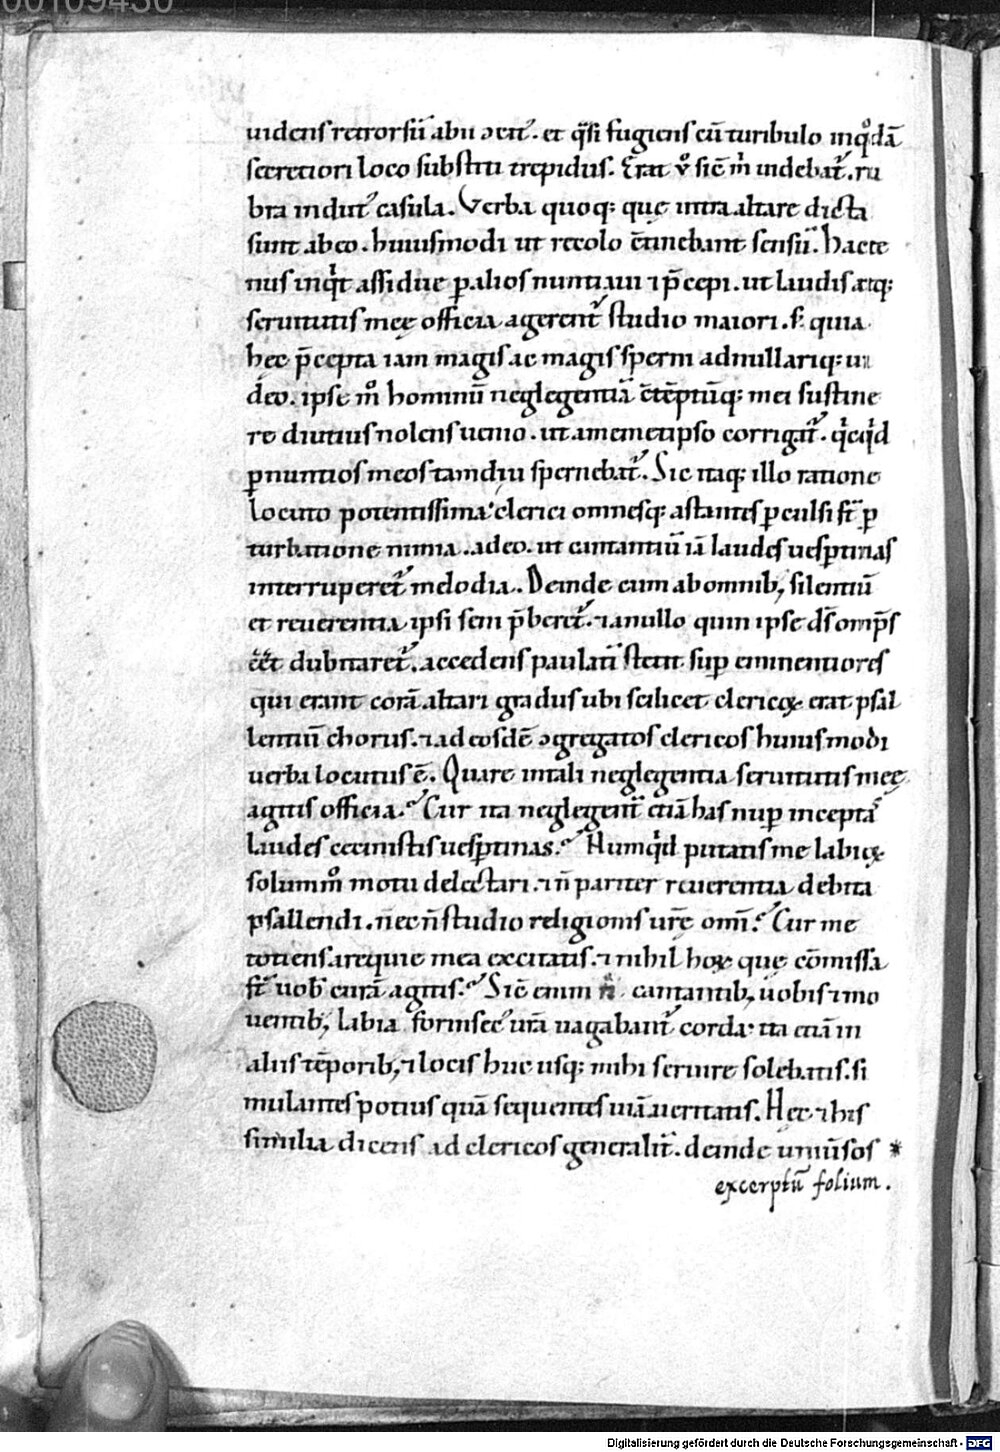 00109430
uidens retrorsũ abii ↄtt̃. et q̃si fugiens cũ turibulo inqͦdã
secretiori loco substiti trepidus. Erat ṽ sic̃ m̃ uidebat̃. ru
bra indut᷒ casula. Verba quoq; quę intra altare dicta
sunt ab eo. huiusmodi ut recolo c̃tinebant sensũ. Hacte
nus inqͥt assidue ꝑ alios nuntiaui ⁊ p̃cepi. ut laudis atq;
seruitutis meę officia agerent̃ studio maiori. s; quia
hęc p̃cepta iam magis ac magis sperni adnullariq; ui
deo. ipse m̊ hominũ neglegentiã c̃tẽptũq; mei sustine
re diutius nolens uenio. ut a memetipso corrigat̃. qͥcqͥd
ꝑ nuntios meos tamdiu spernebat̃. Sic itaq; illo ratione
locuto potentissima clerici omnesq; astantes ꝑculsi st̃ ꝑ
turbatione nimia. adeo. ut cantantiũ iã laudes uesꝑtinas
interruperet̃ melodia. Deinde cum ab omnib; silentiũ
et reuerentia ipsi seni p̃beret̃. ⁊ a nullo quin ipse d̃s omp̃s
c̃c̃t dubitaret̃. accedens paulatĩ stetit suꝑ eminentiores
qui erant corã altari gradus ubi scilicet clericoꝝ erat psal
lentiũ chorus. ⁊ ad eosdẽ ↄgregatos clericos huiusmodi
uerba locutus ẽ. Quare in tali neglegentia seruitutis meę
agitis officia? Cur ita neglegent̃ etiã has nuꝑ incepta᷒
laudes cecinistis uesꝑtinas? Numqͥd putatis me labioꝝ
solummͦ motu delectari. ⁊ ñ pariter reuerentia debita
psallendi. necñ studio religionis ur̃ę om̃i? Cur me
totiens a requie mea excitatis. ⁊ nihil hoꝝ quę cõmissa
st̃ uob᷒ curã agitis? Sic̃ enim ñ cantantib; uobis ⁊ mo
uentib; labia forinsec᷒ ur̃a uagabant̃ corda. ita etiã in
aliis tẽporib; ⁊ locis huc usq; mihi seruire solebatis. si
mulantes potius quã sequentes uiã ueritatis. Hęc ⁊ his
similia dicens ad clericos generalit̃. deinde uniũsos *
excerptũ folium.
Digitalisierung gefördert durch die Deutsche Forschungsgemeinschaft - DFG